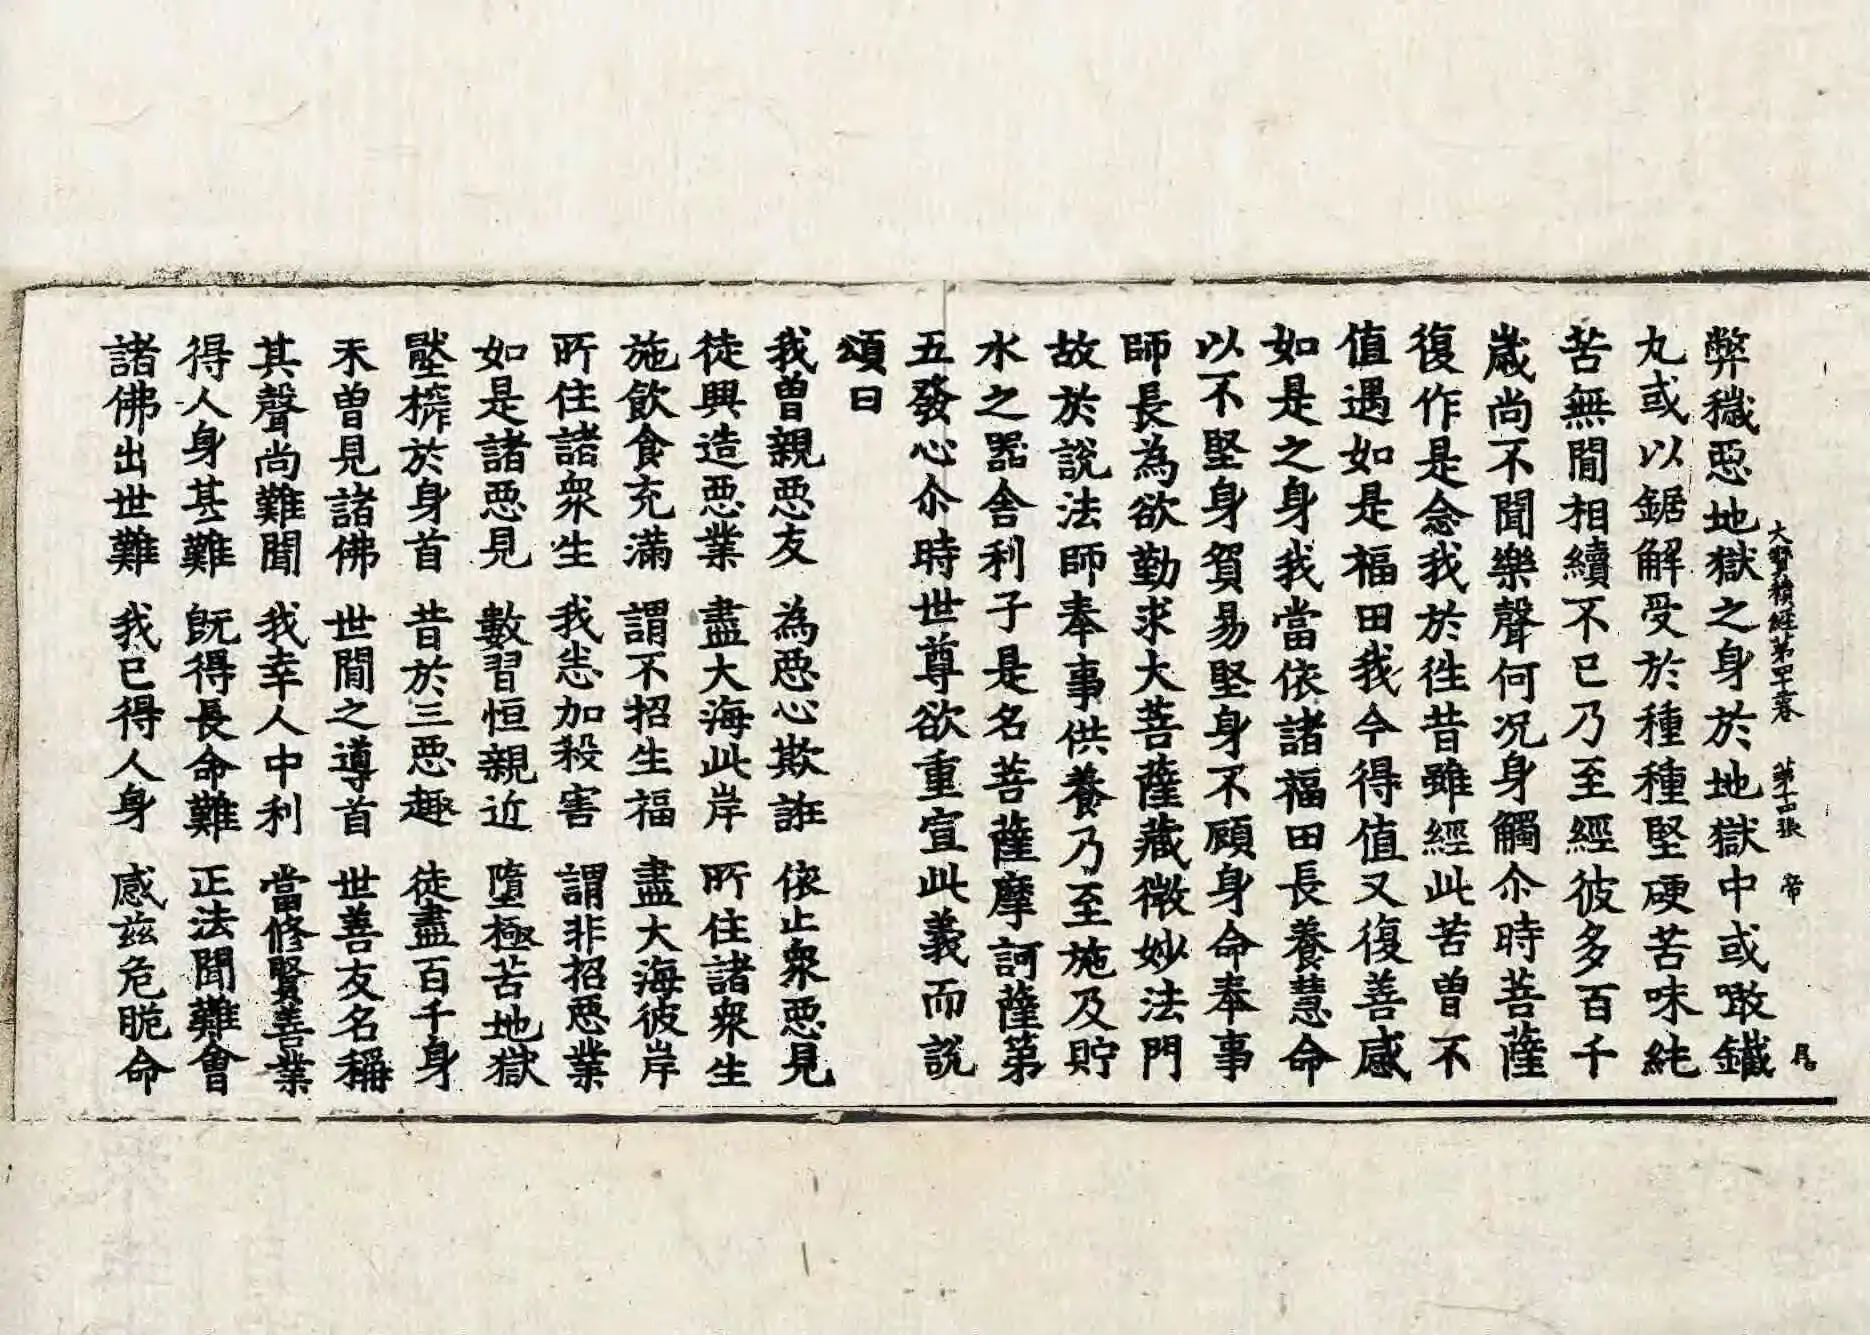 大寶積經第四十卷 第十四張 帝
弊穢惡地獄之身於地獄中或噉鐵
丸或以鋸解受於種種堅硬苦味純
苦無間相續不已乃至經彼多百千
歲尚不聞樂聲何况身觸尒時菩薩
復作是念我於徃昔雖經此苦曾不
值遇如是福田我今得值又復善感
如是之身我當依諸福田長養慧命
以不堅身貿易堅身不顧身命奉事
師長為欲勤求大菩薩藏微妙法門
故於說法師奉事供養乃至施及貯
水之器舍利子是名菩薩摩訶薩第
五發心尒時世尊欲重宣此義而說
頌曰
我曾親惡友 為惡心欺誑 依止衆惡見
徒興造惡業 盡大海此岸 所住諸衆生
施飲食充滿 謂不招生福 盡大海彼岸
所住諸衆生 我恙加殺害 謂非招惡業
如是諸惡見 數習恒親近 墮極苦地獄
壓搾於身首 昔於三惡趣 徒盡百千身
未曾見諸佛 世間之導首 世善友名稱
其聲尚難聞 我幸人中利 當修賢善業
得人身甚難 既得長命難 正法聞難會
諸佛出世難 我已得人身 感茲危脆命